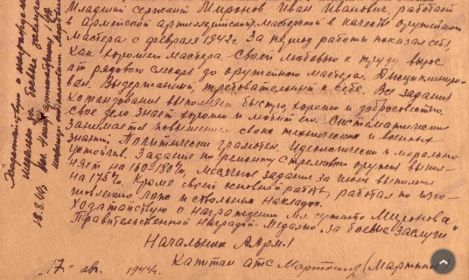 Младший сержант Миронов Иван Иванович работает
в армейской артиллерийской мастерской в качестве оружейного
мастера с февраля 1942 г. За период работы показал себя
как хороший мастера. Своей любовью к труду вырос
от рядового слесаря до оружейного мастера. Дисциплиниро-
ван. Выдержанный, требовательный к себе. Все задания
командования выполняет быстро, хорошо и добросовестно.
свое дело знает хорошо и любит его. Систематически
занимается повышением своих технических и военных
знаний. Политически грамотен. Идеологически и морально
устойчив. Задание по ремонту стрелкового оружия выпол-
няет на 160-180%, месячное задание за июль выполнил
на 175%. Кроме своей основной работы, работал по изго-
товлению лож и ствольных накладок.
Ходатайствую о награждении Мл. сержанта Миронова
Правительственной наградой Медалью "За боевые заслуги"
Начальник ААРМ-1
Капитан атс Мартынов (Мартынов)
17 авг. 1944 г.
Ходатайствую о награждении
медалью "За боевые заслуги"
18.8.44г.